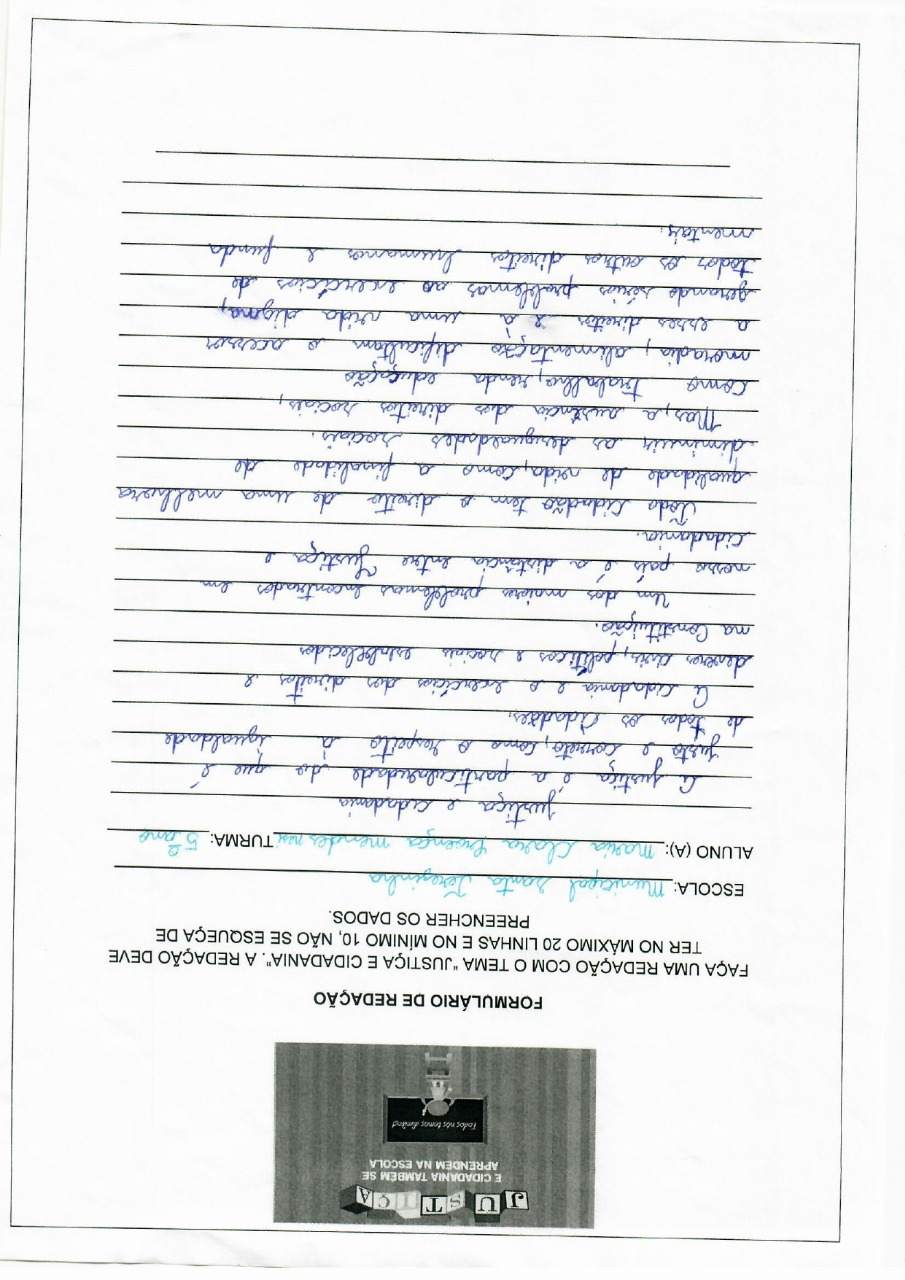 JUSTIÇA
E CIDADANIA TAMBÉM SE
APRENDEM NA ESCOLA
Todos nós temos direitos!
FORMULÁRIO DE REDAÇÃO
FAÇA UMA REDAÇÃO COM O TEMA "JUSTIÇA E CIDADANIA". A REDAÇÃO DEVE
TER NO MÁXIMO 20 LINHAS E NO MÍNIMO 10, NÃO SE ESQUEÇA DE
PREENCHER OS DADOS.
ESCOLA: Municipal Santa Terezinha
ALUNO (A): Maria Clara Proença Mendes TURMA: 5º ano
Justiça e cidadania
A justiça é a particularidade do que é
justo e correto, como o respeito à igualdade
de todos os Cidadões.
A cidadania e o exercícios dos direitos e
deveres civis, políticos e sociais estabelecidos
na Constituição.
Um dos maiores problemas encontrados em
nosso país é a distância entre Justiça e
Cidadania.
Todo Cidadão tem o direito de uma melhora
qualidade de vida, como a finalidade de
diminuir as desigualdades sociais.
Mas, a ausência dos direitos sociais,
como trabalho, renda, educação
moradia, alimentação dificultam o acesso
a esses direitos e à uma vida digna,
gerando sérios problemas ao exercícios de
todos os outros direitos humanos e funda
mentais.